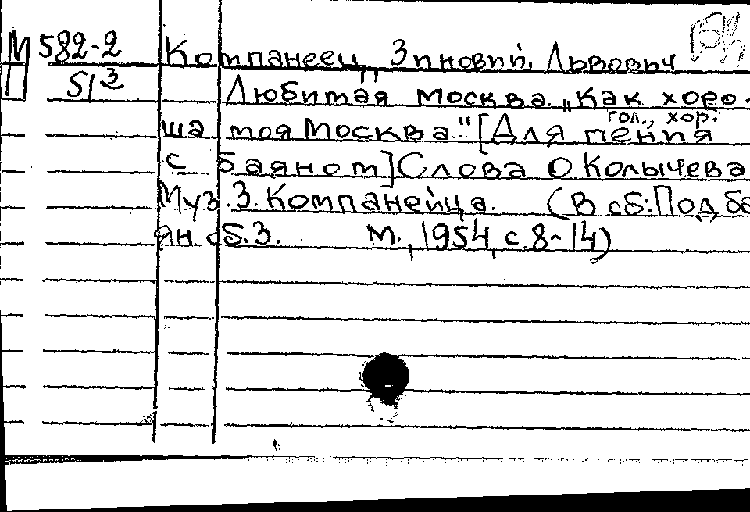 М 582-2 Компанеец, Зиновий Львович
513 Любимая Москва. „Как хоро-
ша моя Москва." [Для гол., хор. пения
с баяном] Слова О. Колычева
Муз. З. Компанейца. (В сб: Под ба
ян. сб. 3. М., 1954, с. 8-14)